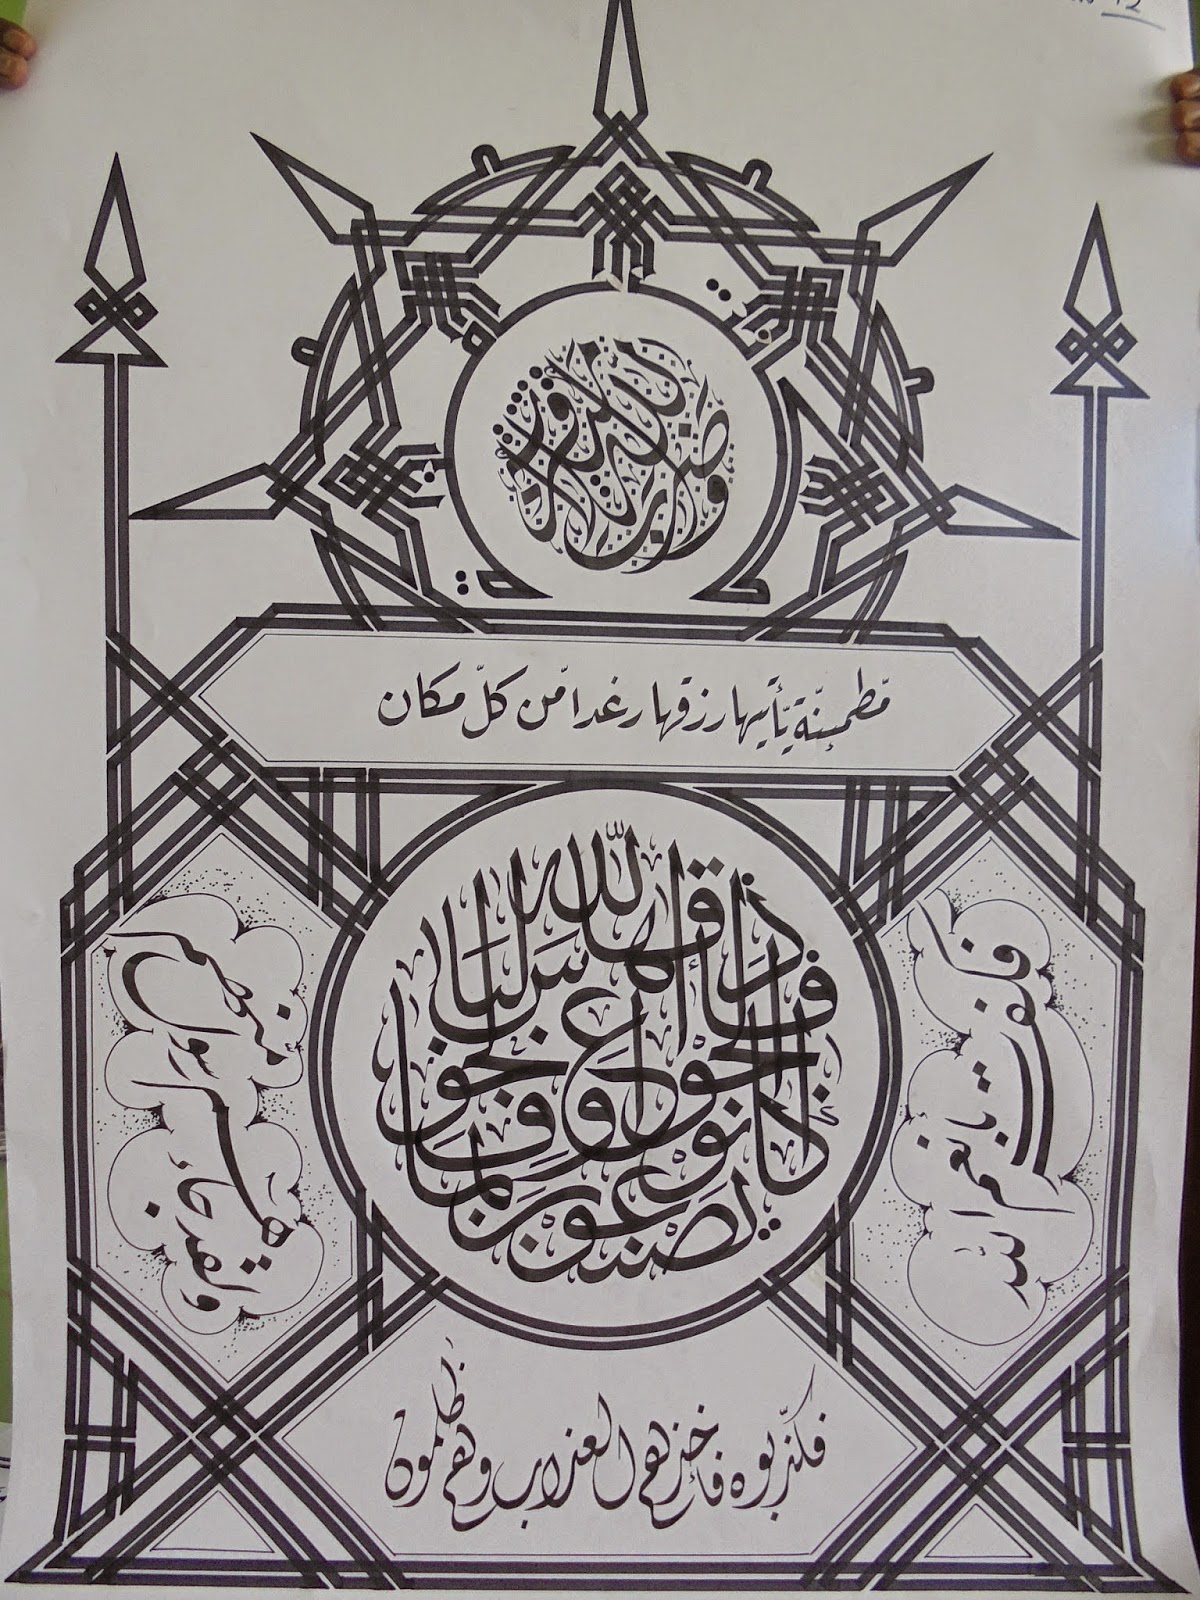 وضرب الله مثلا قرية كانت ءامنة
مّطمئنّة يّأتيها رزقها رغدا مّن كلّ مكان
فكفرت بأنعم الله
فأذاقها الله لباس الجوع والخوف بما كانوا يصنعون
ولقد جاءهم رسول منهم
فكذّبوه فأخذهم العذاب وهم ظلمون